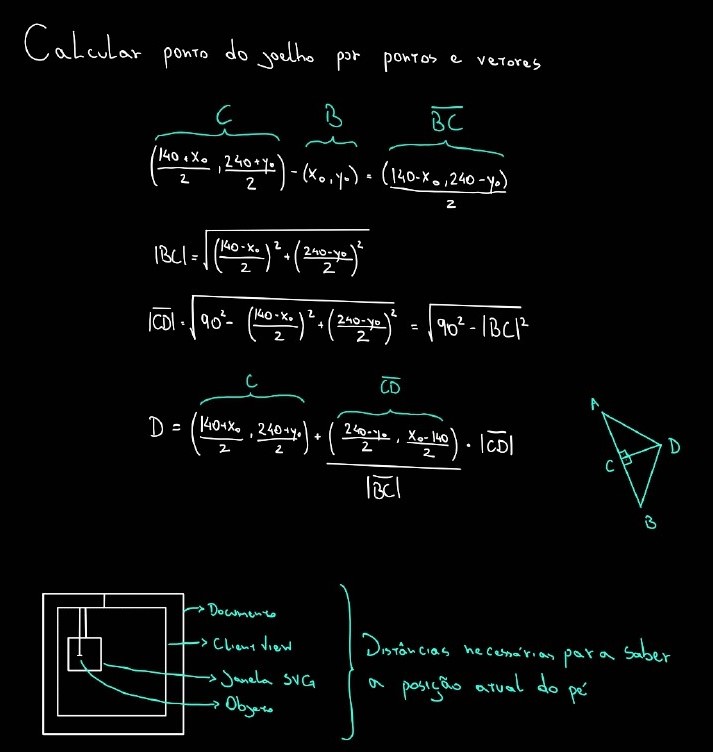 Calcular ponto do joelho por pontos e vetores
C B BC
((140+x₀)/2 , (240+y₀)/2) - (x₀, y₀) = (140-x₀, 240-y₀)/2
|BC| = √(((140-x₀)/2)² + ((240-y₀)/2)²)
|CD| = √(90² - ((140-x₀)/2)² + ((240-y₀)/2)²) = √(90² - |BC|²)
C CD
D = ((140+x₀)/2 , (240+y₀)/2) + ((240-y₀)/2 , (x₀-140)/2)/|BC| · |CD|
A
D
C
B
Documento
Client view
Janela SVG
Objeto
Distâncias necessárias para saber
a posição atual do pé